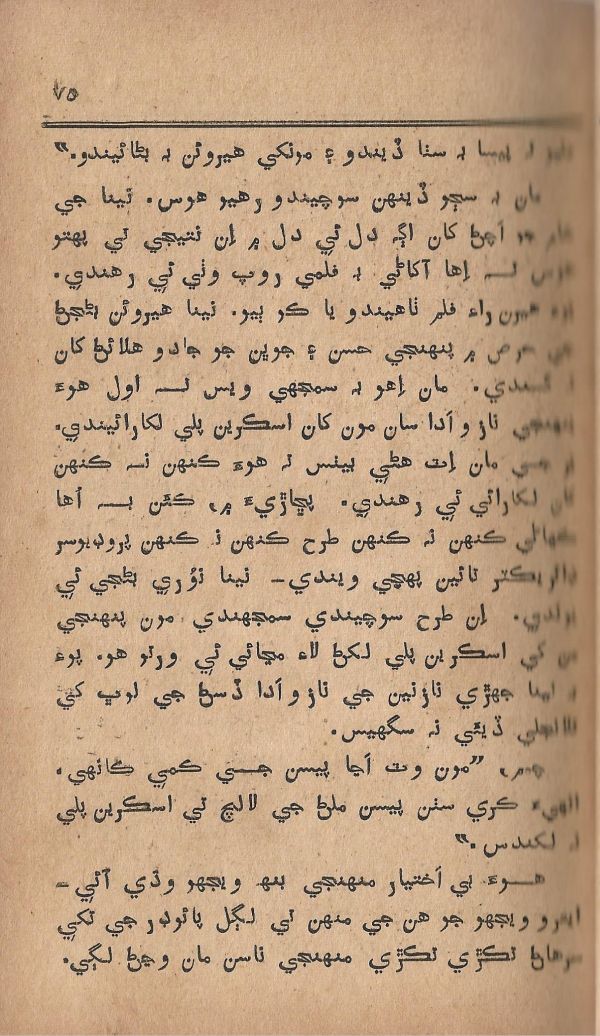 ٧٥
پيسا بہ سٺا ڏيندو ۽ مونکي هيروئن بہ بڻائيندو.”
مان بہ سڄو ڏينهن سوچيندو رهيو هوس. نينا جي
جو اچڻ کان اڳہ دل ئي دل ۾ اِن نتيجي تي پهتو
هوس تہ اِها آکاڻي بہ فلمي روپ وٺي ئي رهندي.
راءِ فلم ٺاهيندو يا ڪو ٻيو. نينا هيروئن بڻجڻ
جي عرض ۾ پنهنجي حسن ۽ جوڀن جو جادو هلائڻ کان
مان اِهو بہ سمجهي ويس تہ اول هوءَ
پنهنجي ناز و اَدا سان مون کان اسڪرين پلي لکارائيندي.
مان اِٽ هڻي بيٺس تہ هوءَ ڪنهن نہ ڪنهن
کان لکارائي ئي رهندي. پڇاڙيءَ ۾، ڪٿن بہ اُها
ڪهاڻي ڪنهن نہ ڪنهن طرح ڪنهن نہ ڪنهن پروڊيوسر
ڊائريڪٽر تائين پهچي ويندي۔ نينا نُوري بڻجي ئي
پوندي. اِن طرح سوچيندي سمجهندي مون پنهنجي
کي اسڪرين پلي لکڻ لاءِ مڃائي ئي ورتو هو. پوءِ
بہ نينا جهڙي نازنين جي ناز و اَدا ڏسڻ جي لوڀ کي
ڏيئي نہ سگهيس.
چيم، “مون وٽ اَڃا پيسن جي ڪمي ڪانهي.
ڪري سٺن پيسن ملڻ جي لالچ تي اسڪرين پلي
نہ لکندس.”
هوءَ بي اَختيار منهنجي بنهہ ويجهو وڌي آئي۔
ايترو ويجهو جو هن جي منهن تي لڳل پائوڊر جي تکي
سرهاڻ ٽڪڙي ٽڪڙي منهنجي ناسن مان وڃڻ لڳي.